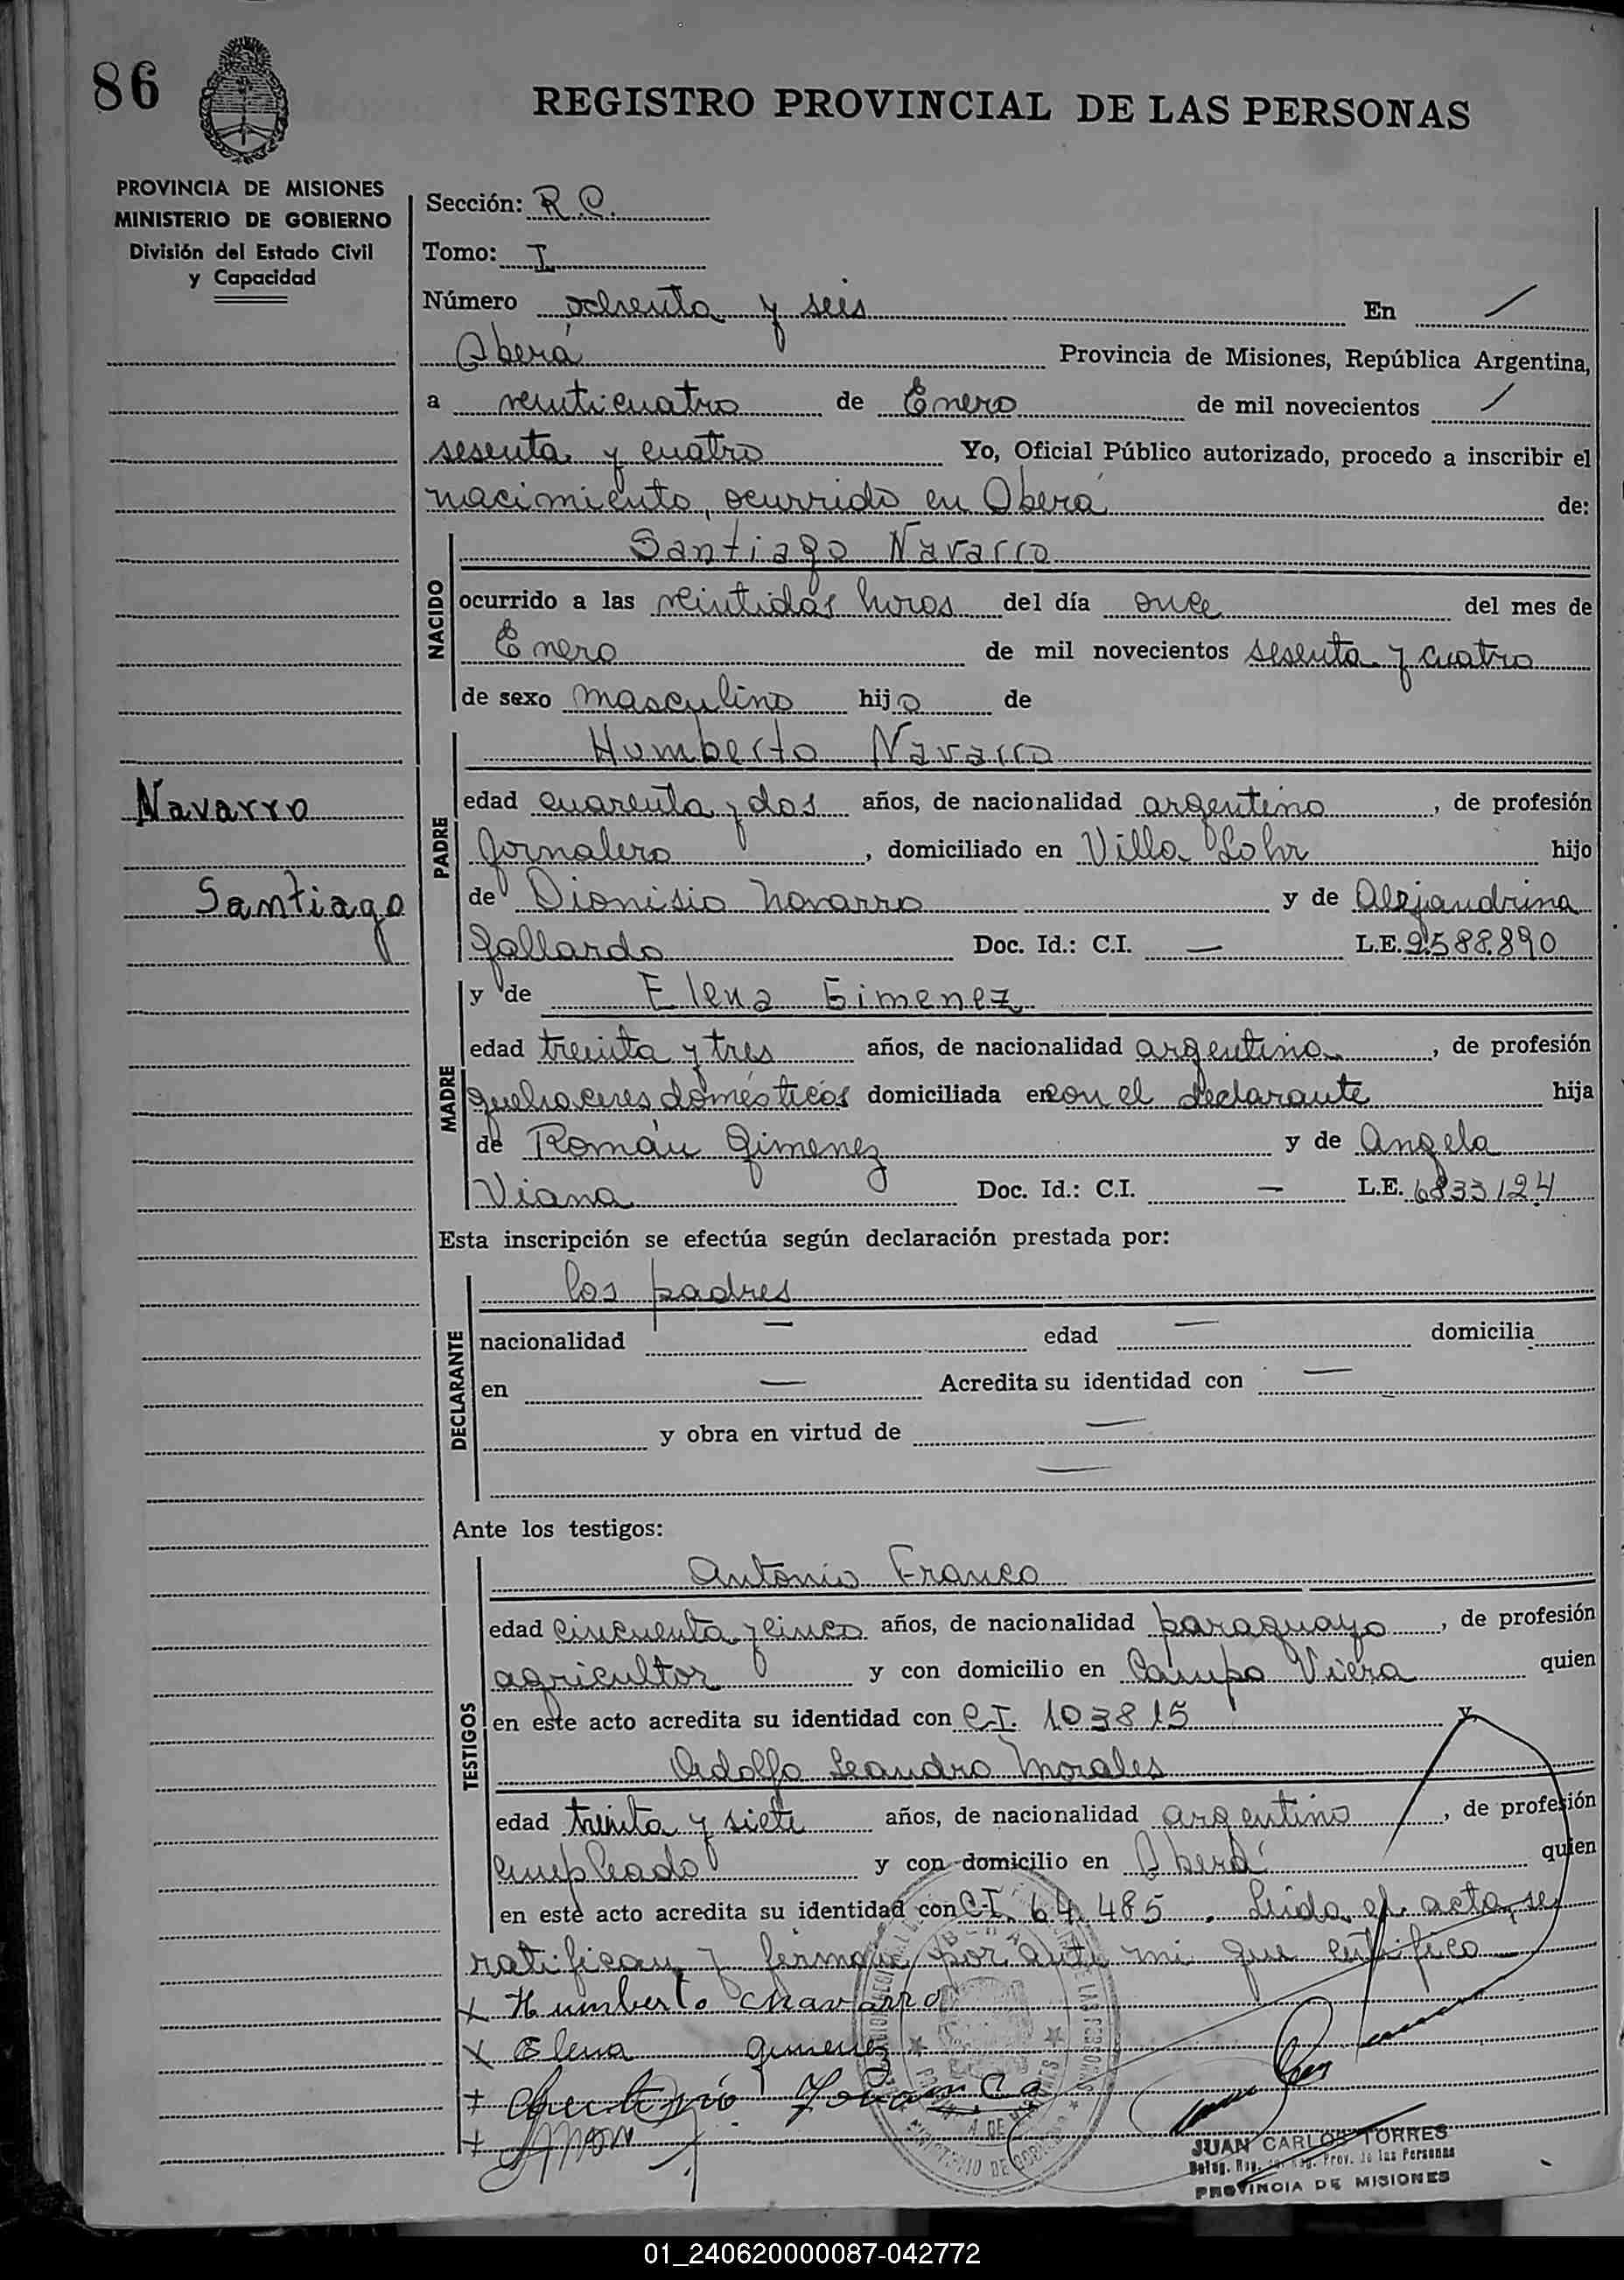 86
REGISTRO PROVINCIAL DE LAS PERSONAS
PROVINCIA DE MISIONES
MINISTERIO DE GOBIERNO
División del Estado Civil
y Capacidad
Sección: R.C.
Tomo: I
Número ochenta y seis En
Oberá Provincia de Misiones, República Argentina,
a veinticuatro de Enero de mil novecientos
sesenta y cuatro Yo, Oficial Público autorizado, procedo a inscribir el
nacimiento, ocurrido en Oberá de:
NACIDO
Santiago Navarro
ocurrido a las veintidós horas del día once del mes de
Enero de mil novecientos sesenta y cuatro
de sexo masculino hijo de
PADRE
Humberto Navarro
Navarro
edad cuarenta y dos años, de nacionalidad argentino, de profesión
Jornalero, domiciliado en Villa Lohr hijo
Santiago
de Dionisio Navarro y de Alejandrina
Gallardo Doc. Id.: C.I. — L.E. 2.588.890
MADRE
y de Elena Gimenez
edad treinta y tres años, de nacionalidad argentina, de profesión
quehaceres domésticos domiciliada en con el declarante hija
de Román Gimenez y de Angela
Viana Doc. Id.: C.I. — L.E. 6833124
Esta inscripción se efectúa según declaración prestada por:
DECLARANTE
los padres
nacionalidad — edad — domicilia
en — Acredita su identidad con —
y obra en virtud de —
—
Ante los testigos:
TESTIGOS
Antonio Franco
edad cincuenta y cinco años, de nacionalidad paraguayo, de profesión
agricultor y con domicilio en Campo Viera quien
en este acto acredita su identidad con C.I. 103815 y
Adolfo Leandro Morales
edad treinta y siete años, de nacionalidad argentino, de profesión
empleado y con domicilio en Oberá quien
en este acto acredita su identidad con C.I. 64.485. Leida el acta, se
ratifican y firman por ante mi que certifico
x Humberto Navarro
x Elena Gimenez
+ Antonio Franco
+
JUAN CARLOS TORRES
Prov. de las Personas
PROVINCIA DE MISIONES
01_240620000087-042772